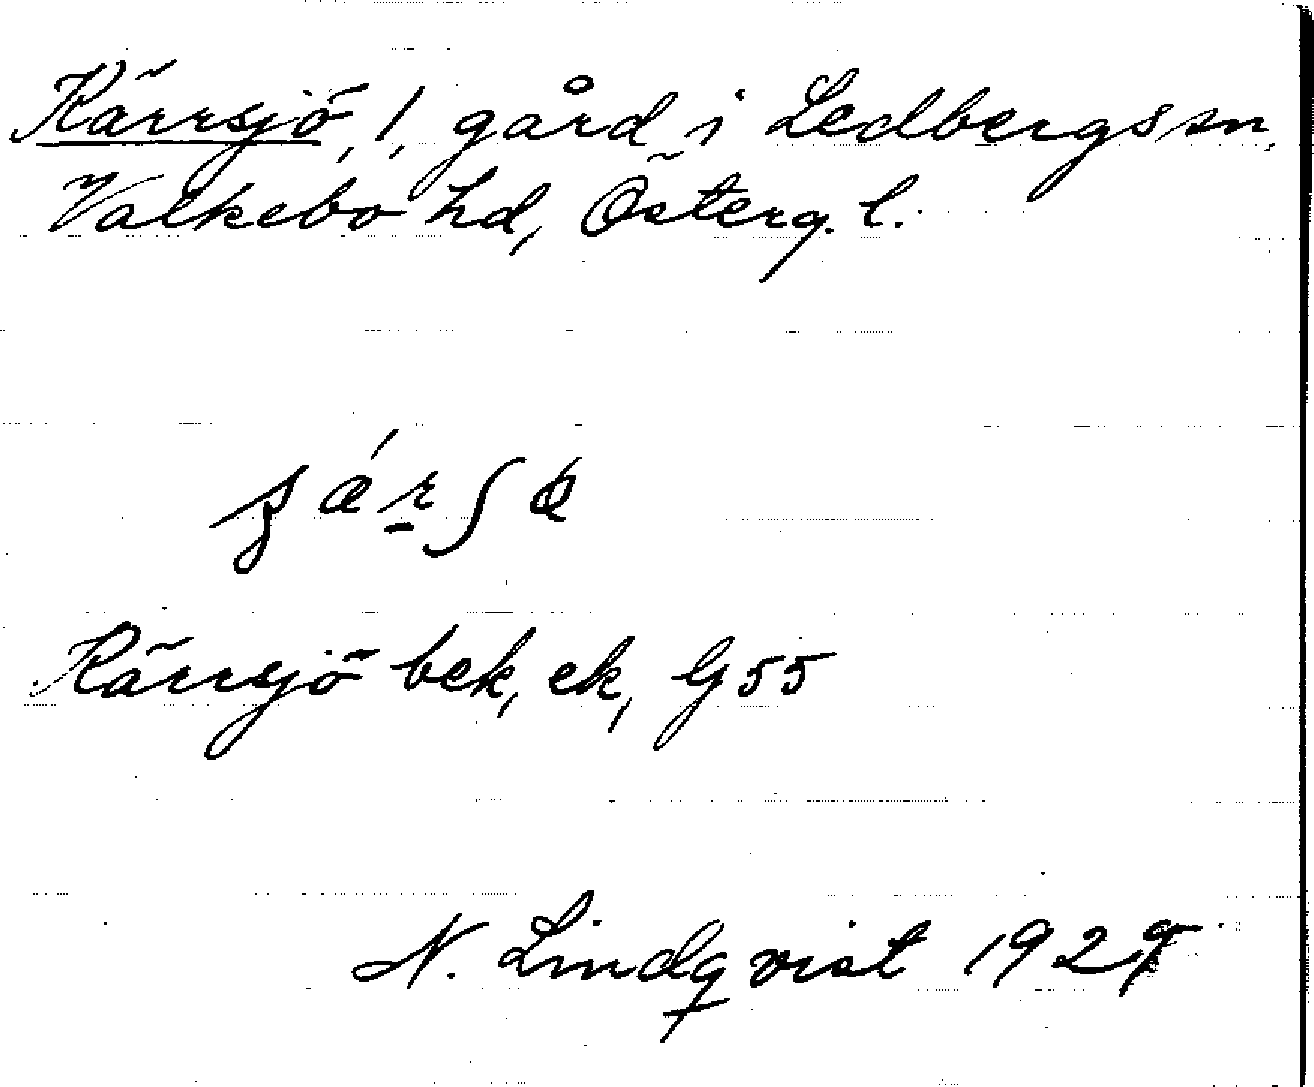 Kärrsjö, 1, gård i Ledbergs sn,
Valkebo hd, Österg. l.
Kärrsjö bek, ek, G 55
N. Lindqvist 1927